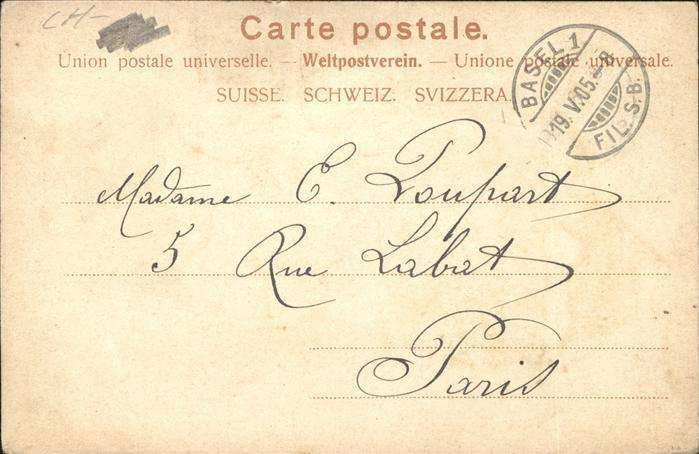 CH-
Carte postale.
Union postale universelle. — Weltpostverein. — Unione postale universale.
SUISSE. SCHWEIZ. SVIZZERA.
BASEL 1
19. V. 05. - 8
FIL. S.B.
Madame E. Poupart
5 Rue Labat
Paris